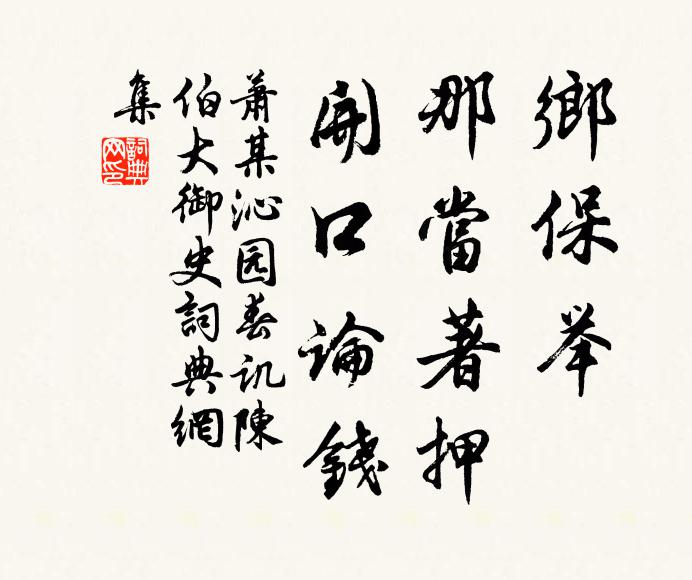 鄉保举
那當著押
開口論錢
萧某沁园春讥陳
伯大御史詞典網
集
詞典网印